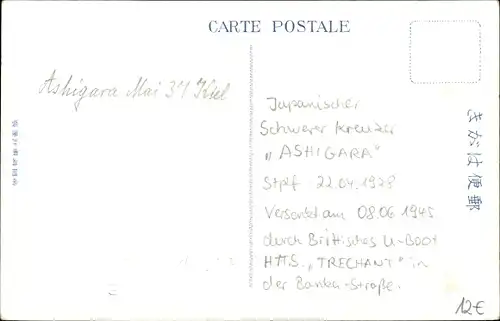 CARTE POSTALE
Ashigara Mai 37 Kiel
Japanischer
Schwerer Kreuzer
„ASHIGARA"
Stpf 22.04.1928
Versenkt am 08.06.1945
durch Brittisches U-Boot
HMS „TRECHANT" in
der Banka-Straße.
きがは便郵
12€